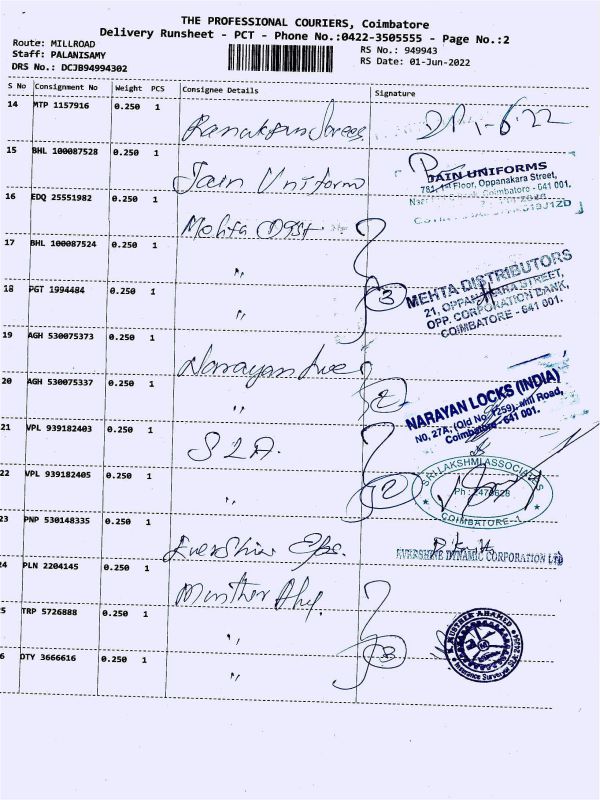 THE PROFESSIONAL COURIERS, Coimbatore
Delivery Runsheet - PCT - Phone No.:0422-3505555 - Page No.:2
Route: MILLROAD
Staff: PALANISAMY
DRS No.: DCJB94994302
RS No.: 949943
RS Date: 01-Jun-2022
S No Consignment No Weight PCS Consignee Details Signature
14 MTP 1157916 0.250 1
15 BHL 100087528 0.250 1 Jain Uniform
JAIN UNIFORMS
781, 1st Floor, Oppanakara Street,
Coimbatore - 641 001.
16 EDQ 25551982 0.250 1 Mehta
17 BHL 100087524 0.250 1 "
18 PGT 1994484 0.250 1 "
3
MEHTA DISTRIBUTORS
21, OPPANAKARA STREET,
OPP. CORPORATION BANK,
COIMBATORE - 641 001.
19 AGH 530075373 0.250 1 Narayan
20 AGH 530075337 0.250 1 "
2
NARAYAN LOCKS (INDIA)
NO, 27A, (Old No. 1259), Mill Road,
Coimbatore - 641 001.
21 VPL 939182403 0.250 1 SLA.
22 VPL 939182405 0.250 1 "
2
SRI LAKSHMI ASSOCIATES
COIMBATORE-1
23 PNP 530148335 0.250 1 Evershine
EVERSHINE DYNAMIC CORPORATION LTD
24 PLN 2204145 0.250 1
5 TRP 5726888 0.250 1 "
6 DTY 3666616 0.250 1 "
3
Insurance Surveyor